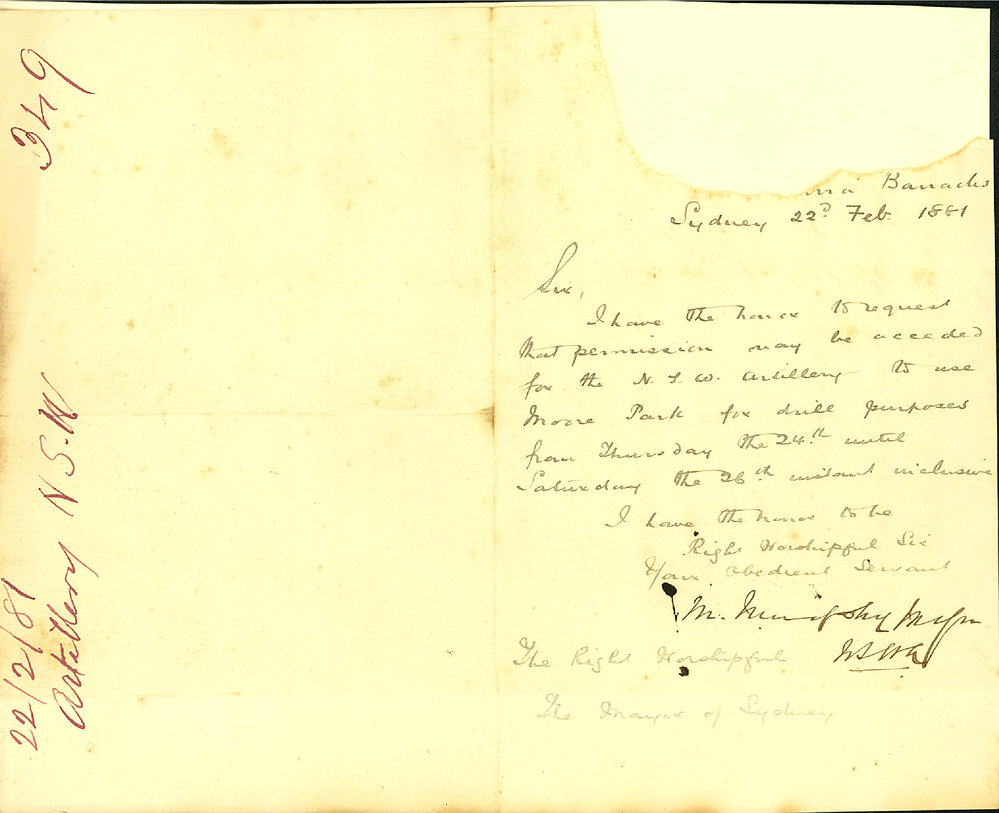 349
22/2/81
Artillery N S. W
Barracks
Sydney 22d Feb. 1881
Sir,
I have the honor to request
that permission may be acceded
for the N. S. W. Artillery to use
Moore Park for drill purposes
from Thursday the 24.th until
Saturday the 26th instant inclusive
I have the honor to be
Right Worshipful Sir
Your Obedient Servant
M.
The Right Worshipful
The Mayor of Sydney